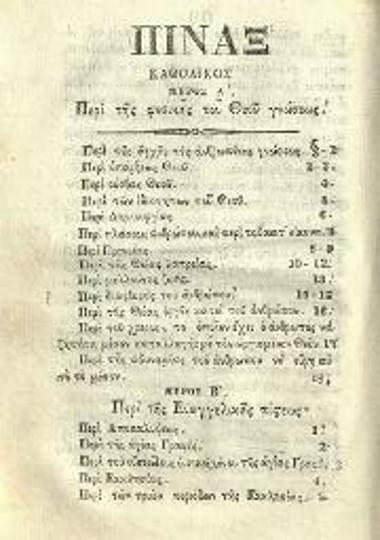 ΠΙΝΑΞ
ΚΑΘΟΛΙΚΟΣ
ΜΕΡΟΣ Α'.
Περὶ τῆς φυσικῆς τοῦ Θεοῦ γνώσεως.
Περὶ τῆς ἀρχῆς τῆς γνώσεως §-2
Περὶ ὑπάρξεως Θεοῦ. 2-3.
Περὶ οὐσίας Θεοῦ. 4.
Περὶ τῶν ἰδιοτήτων τοῦ Θεοῦ. 5.
Περὶ Δημιουργίας 6.
Περὶ πλάσεως ἀνθρώπου καὶ περὶ τοῦ κατ' εἰκόνα.
Περὶ Προνοίας. 8-9
Περὶ τῆς Θείας λατρείας. 10-12.
Περὶ μελλούσης ζωῆς. 13.
Περὶ τοῦ ἀνθρώπου
Περὶ τῆς Θείας ὀργῆς κατὰ τοῦ ἀνθρώπου. 16.
Περὶ τοῦ χρέους, τὸ ὁποῖον ἔχει ὁ ἄνθρωπος νὰ
μέσον Θεόν. 17
Περὶ τῆς ἀδυναμίας τοῦ ἀνθρώπου νὰ εὕρῃ
τὸ μέσον. 18.
ΜΕΡΟΣ Β'.
Περὶ τῆς Εὐαγγελικῆς πίστεως.
Περὶ Ἀποκαλύψεως. 1.
Περὶ τῆς ἁγίας Γραφῆς. 2.
Περὶ τοῦ τῆς ἁγίας Γραφ. 3
Περὶ Ἐκκλησίας. 4.
Περὶ τῶν τριῶν περιόδων τῆς Ἐκκλησίας.